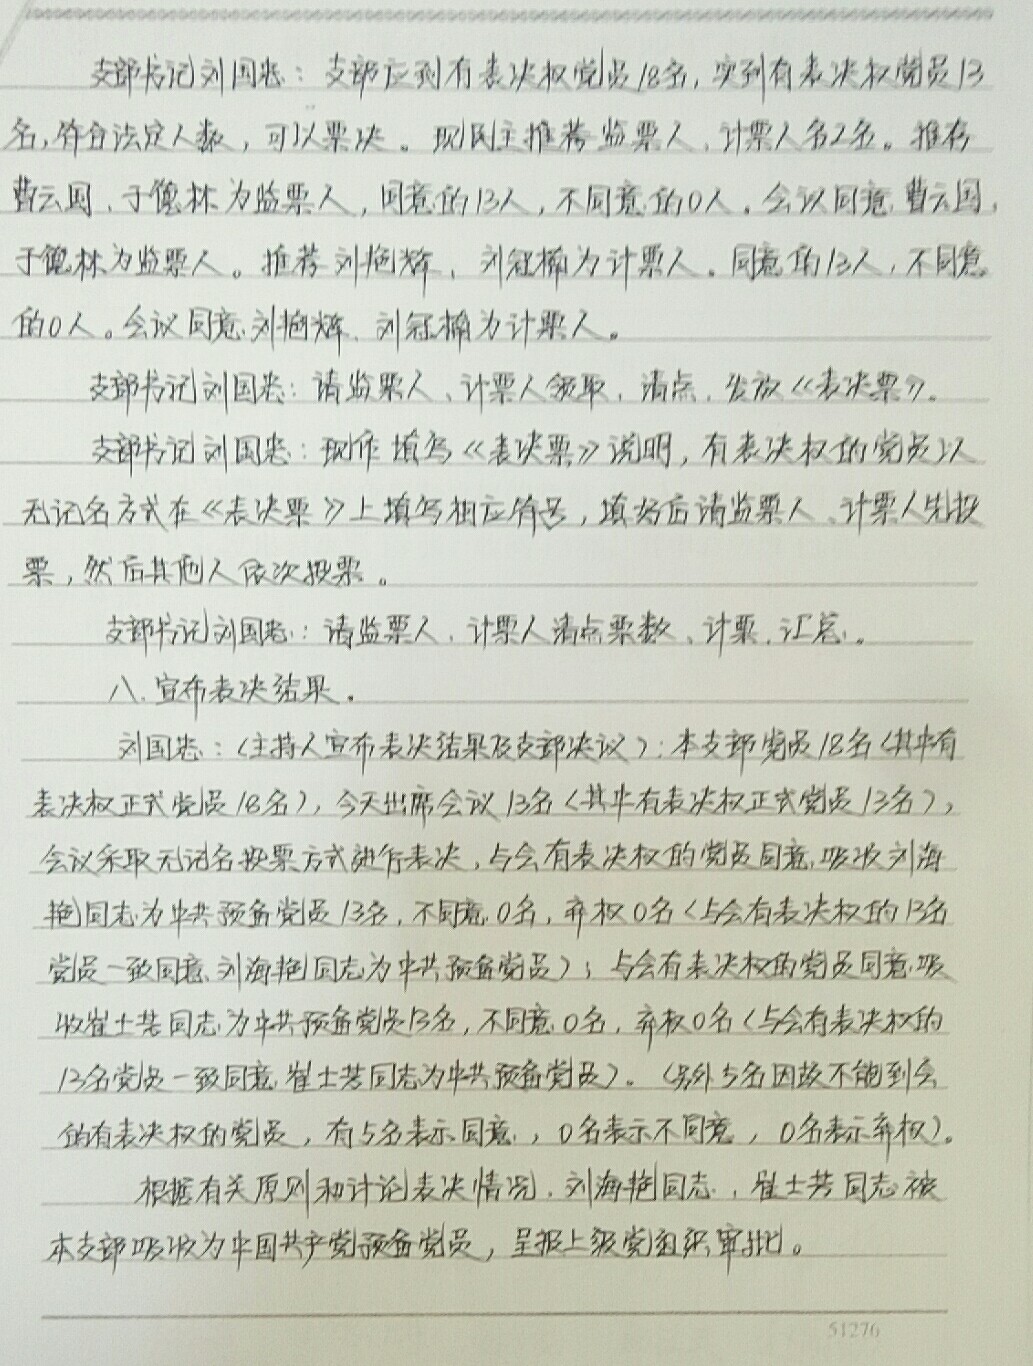 支部书记刘国忠：支部应到有表决权党员18名，实到有表决权党员13
名，符合法定人数，可以票决。现民主推荐监票人、计票人各2名。推荐
曹云国、于德林为监票人，同意的13人，不同意的0人。会议同意曹云国、
于德林为监票人。推荐刘艳辉、刘冠楠为计票人。同意的13人，不同意
的0人。会议同意刘艳辉、刘冠楠为计票人。
支部书记刘国忠：请监票人、计票人领取、清点、发放《表决票》。
支部书记刘国忠：现作填写《表决票》说明，有表决权的党员以
无记名方式在《表决票》上填写相应符号，填好后请监票人、计票人先投
票，然后其他人依次投票。
支部书记刘国忠：请监票人、计票人清点票数、计票、汇总。
八、宣布表决结果。
刘国忠：（主持人宣布表决结果及支部决议）：本支部党员18名（其中有
表决权正式党员18名），今天出席会议13名（其中有表决权正式党员13名），
会议采取无记名投票方式进行表决，与会有表决权的党员同意吸收刘海
艳同志为中共预备党员13名，不同意0名，弃权0名（与会有表决权的13名
党员一致同意刘海艳同志为中共预备党员）；与会有表决权的党员同意吸
收崔士芳同志为中共预备党员13名，不同意0名，弃权0名（与会有表决权的
13名党员一致同意崔士芳同志为中共预备党员）。（另外5名因故不能到会
的有表决权的党员，有5名表示同意，0名表示不同意，0名表示弃权）。
根据有关原则和讨论表决情况，刘海艳同志、崔士芳同志被
本支部吸收为中国共产党预备党员，呈报上级党组织审批。
51276